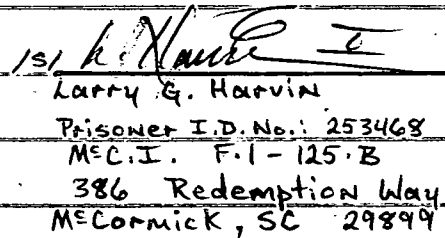 /s/ L. Harvin I
Larry G. Harvin
Prisoner I.D. No.: 253468
McC.I. F.1-125.B
386 Redemption Way
McCormick, SC 29899